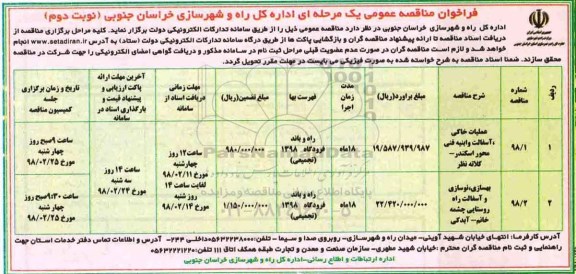 فراخوان مناقصه عمومی یک مرحله ای اداره کل راه و شهرسازی خراسان جنوبی (نوبت دوم)
اداره کل راه و شهرسازی خراسان جنوبی در نظر دارد مناقصه عمومی ذیل را از طریق سامانه تدارکات الکترونیکی دولت برگزار نماید. کلیه مراحل برگزاری مناقصه از
دریافت اسناد مناقصه تا ارائه پیشنهاد مناقصه گران و بازگشایی پاکت ها از طریق درگاه سامانه تدارکات الکترونیکی دولت (ستاد) به آدرس www.setadiran.ir انجام
خواهد شد و لازم است مناقصه گران در صورت عدم عضویت قبلی مراحل ثبت نام در سامانه مذکور و دریافت گواهی امضای الکترونیکی را جهت شرکت در مناقصه
محقق سازند. ضمنا اسناد مناقصه به شرح خواسته شده به صورت فیزیکی می بایست در مهلت مقرر تحویل گردد.
ردیف
شماره مناقصه
شرح مناقصه
مبلغ برآورد(ریال)
مدت زمان اجرا
فهرست بها
مبلغ تضمین(ریال)
مهلت زمانی دریافت اسناد از سامانه
آخرین مهلت ارائه پاکت ارزیابی و پیشنهاد قیمت و بارگذاری اسناد در سامانه
تاریخ و زمان برگزاری جلسه کمیسیون مناقصه
۱
۹۸/۱
عملیات خاکی ،آسفالت وابنیه فنی محور اسکندر- کلاته نظر
۱۹/۵۸۷/۹۳۹/۹۸۷
۱۸ماه
راه و باند فرودگاه ۱۳۹۸ (تجمیعی)
۹۸۰/۰۰۰/۰۰۰
ساعت۱۲ روز چهارشنبه مورخ ۹۸/۰۲/۱۱ لغایت ساعت ۱۴ روز شنبه مورخ ۹۸/۰۲/۱۴
ساعت ۱۴ روز سه شنبه مورخ ۹۸/۰۲/۲۴
ساعت ۹صبح روز چهارشنبه مورخ ۹۸/۰۲/۲۵
۲
۹۸/۲
بهسازی،نوسازی و آسفالت راه روستایی چشمه خانم- آبدکی
۲۲/۴۲۰/۰۰۰/۰۰۰
۱۸ماه
راه و باند فرودگاه ۱۳۹۸ (تجمیعی)
۱/۱۵۰/۰۰۰/۰۰۰
ساعت ۹:۳۰صبح روز چهارشنبه مورخ ۹۸/۰۲/۲۵
آدرس کارفرما: انتهای خیابان شهید آوینی- میدان راه و شهرسازی- روبروی صدا و سیما - تلفن:۰۵۶۳۲۲۳۸۰۰۰داخلی ۲۴۴- آدرس و اطلاعات تماس دفتر خدمات استان جهت
راهنمایی و ثبت نام مناقصه گران محترم : خیابان شهید مطهری- سازمان صنعت و معدن و تجارت طبقه همکف اتاق ۱۱۱ تلفن:۰۵۶۳۲۲۲۱۲۲۰
اداره ارتباطات و اطلاع رسانی-اداره کل راه و شهرسازی خراسان جنوبی